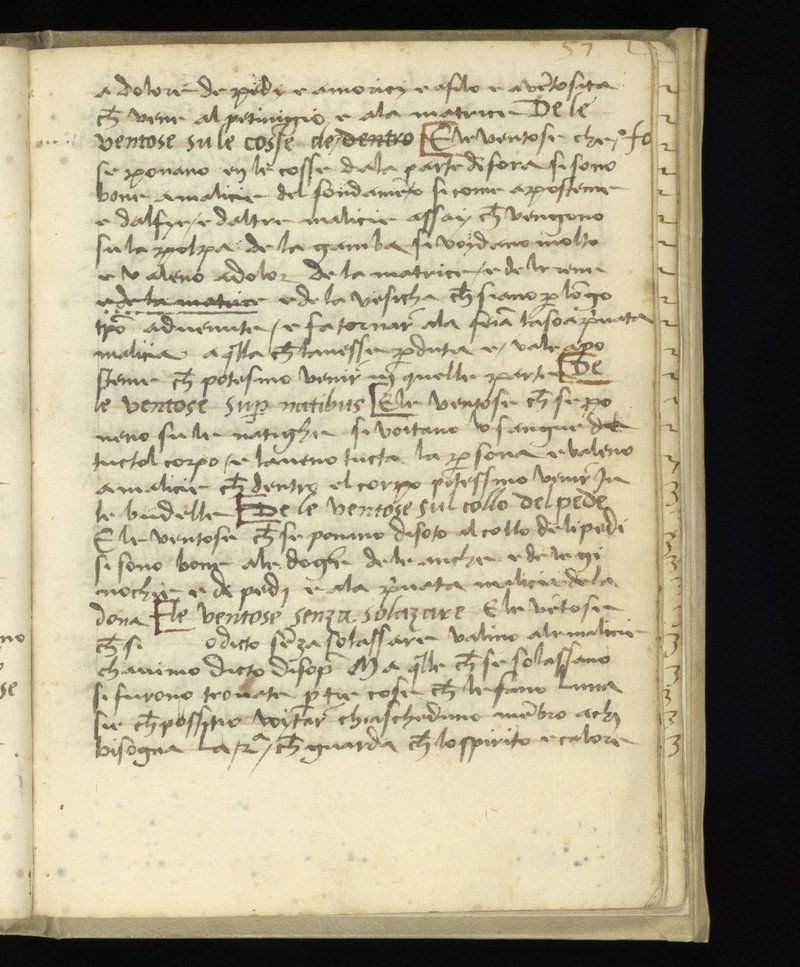 57
a dolore de pedy e amoricy e asilo e a vētosita
ch̄ vene al petiniggio e ala matrice De le
ventose su le cosse de dentro E le ventose che fo
se ponano en le cosse dala parte de fora si sono
bone a malicie del fondamēto si come aposteme
e dalfye e daltre malicie assay ch̄ vengono
su la polpa de la gamba si voydano molto
e valeno a dolor de la matrice e de le rene
e de la matrice e de la vesicha ch̄ siano p lōgo
tpō advenute e fa tornar ala
malicia a qlla ch̄ lavesse pduta e vale apo
steme ch̄ potesino venir in quelle parte De
le ventose sup natibus E le ventose ch̄ se po
neno su le natighe si voitano lo sangue de
tuctol corpo e laveno tucta la psona e valeno
a malicie ch̄ dentro el corpo potessino venir In
le budelle De le ventose sul collo del pede
E le ventose ch̄ se ponino disoto al collo deli pedi
si sono bone ale doghe de le anche e de le gi
nochie e de pedi e ala pvata malicia de la
dona E le ventose senza solazare E le vētose
ch̄ si odicto sēza solassare valino ale malicie
chavimo dicto disop Ma qlle ch̄ se solassano
si furono trovate p tre cose ch̄ le fano Luna
sie ch̄ possino voytar chiascheduno mēbro a chi
bisogna La 2a ch̄ guarda ch̄ lo spirito e calore
no
se